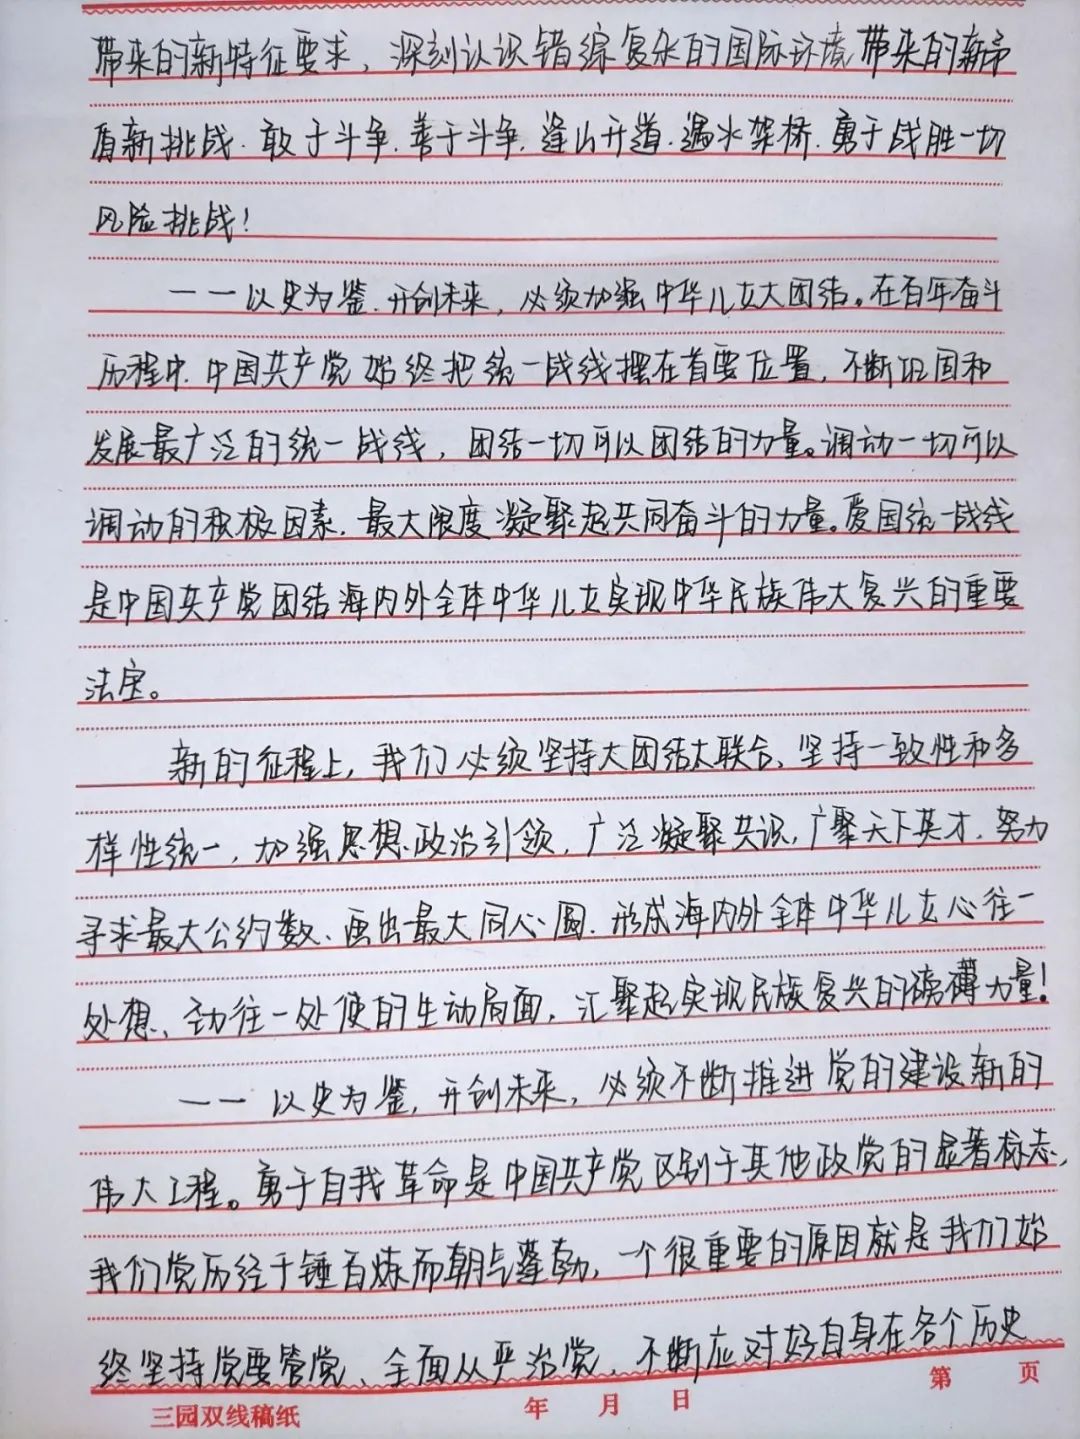 带来的新特征要求，深刻认识错综复杂的国际环境带来的新矛
盾新挑战.敢于斗争.善于斗争.逢山开道.遇水架桥.勇于战胜一切
风险挑战！
——以史为鉴.开创未来，必须加强中华儿女大团结。在百年奋斗
历程中.中国共产党始终把统一战线摆在首要位置，不断巩固和
发展最广泛的统一战线，团结一切可以团结的力量。调动一切可以
调动的积极因素.最大限度凝聚起共同奋斗的力量。爱国统一战线
是中国共产党团结海内外全体中华儿女实现中华民族伟大复兴的重要
法宝。
新的征程上，我们必须坚持大团结大联合、坚持一致性和多
样性统一，加强思想政治引领，广泛凝聚共识，广聚天下英才.努力
寻求最大公约数、画出最大同心圆.形成海内外全体中华儿女心往一
处想、劲往一处使的生动局面，汇聚起实现民族复兴的磅礴力量！
——以史为鉴，开创未来，必须不断推进党的建设新的
伟大工程。勇于自我革命是中国共产党区别于其他政党的显著标志，
我们党历经千锤百炼而朝气蓬勃，一个很重要的原因就是我们始
终坚持党要管党、全面从严治党，不断应对好自身在各个历史
三园双线稿纸 年 月 日 第 页